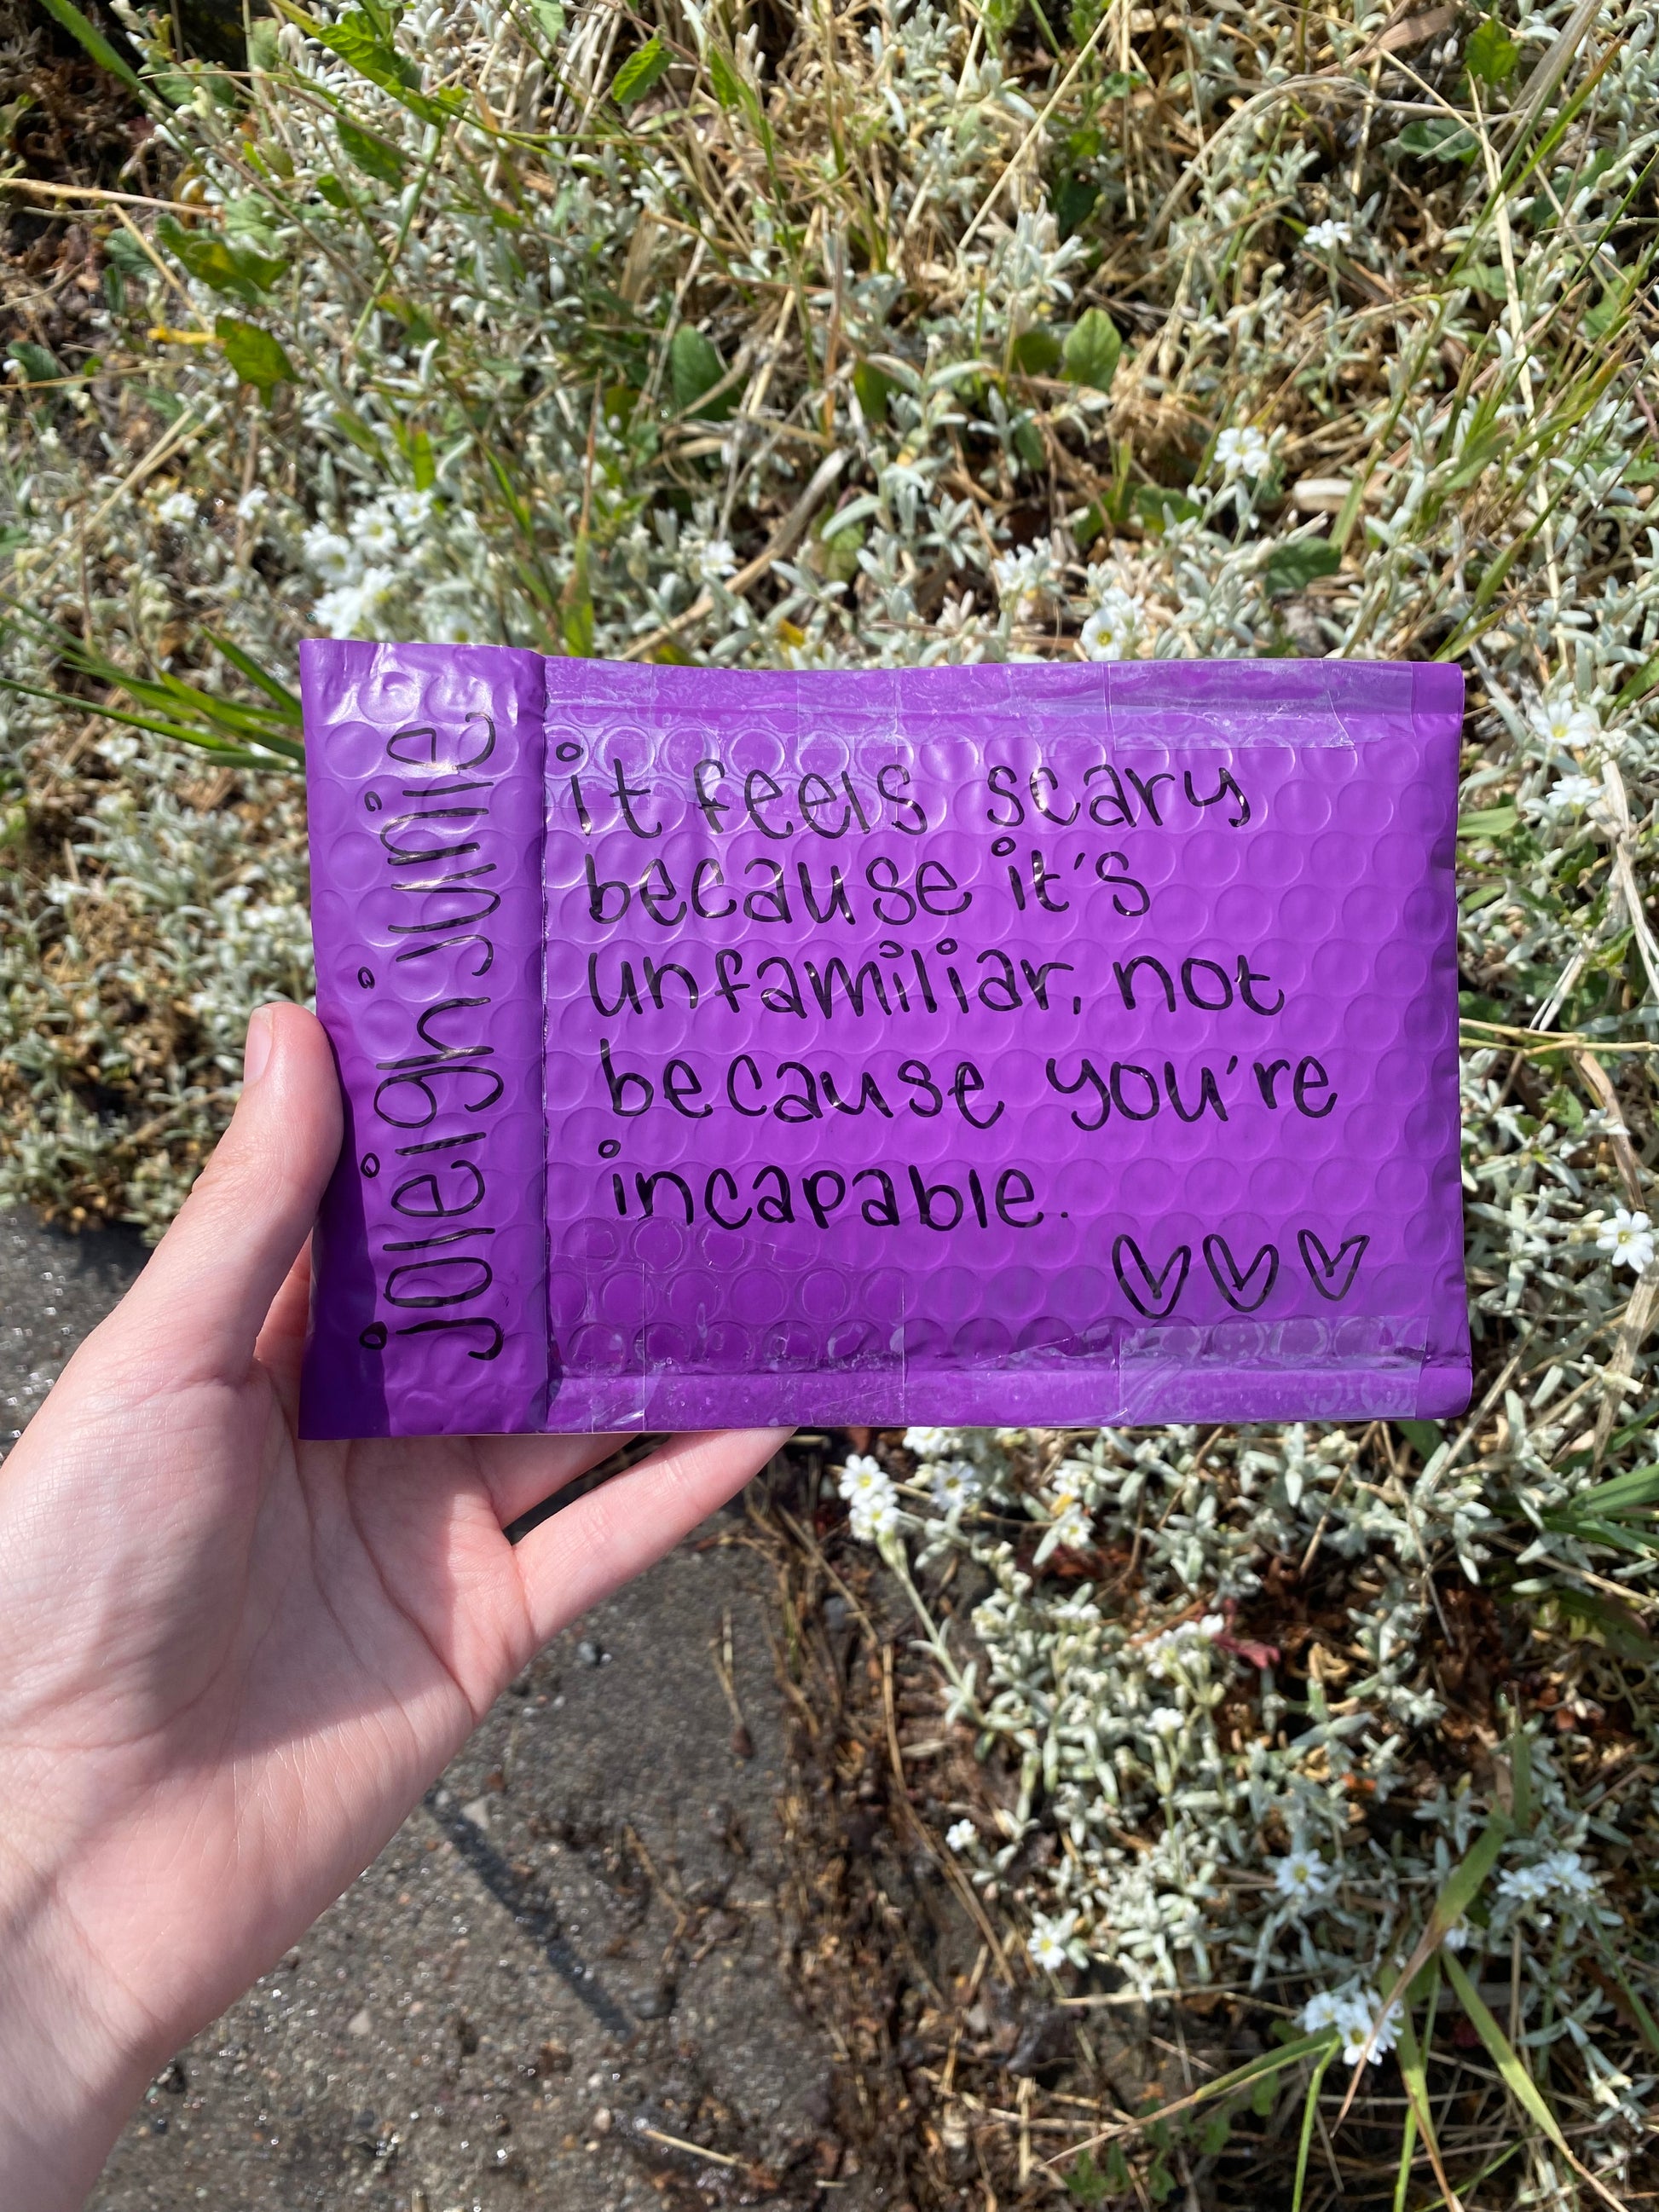 joleighjunie
it feels scary
because it's
unfamiliar, not
because you're
incapable.